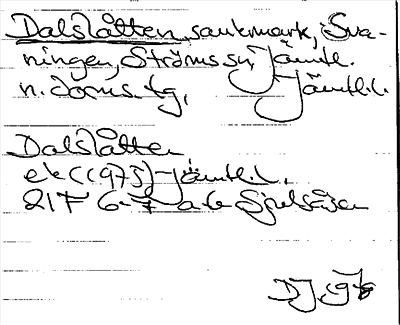 Dalslåtten, sankmark, Sva-
ningen, Ströms sn, Jämtl.
n. doms. tg, Jämtl. l.
Dalslåtten
ek (1975) Jämtl. l.
21F 6-7 a-b Sjulsåsen
DJ 1976